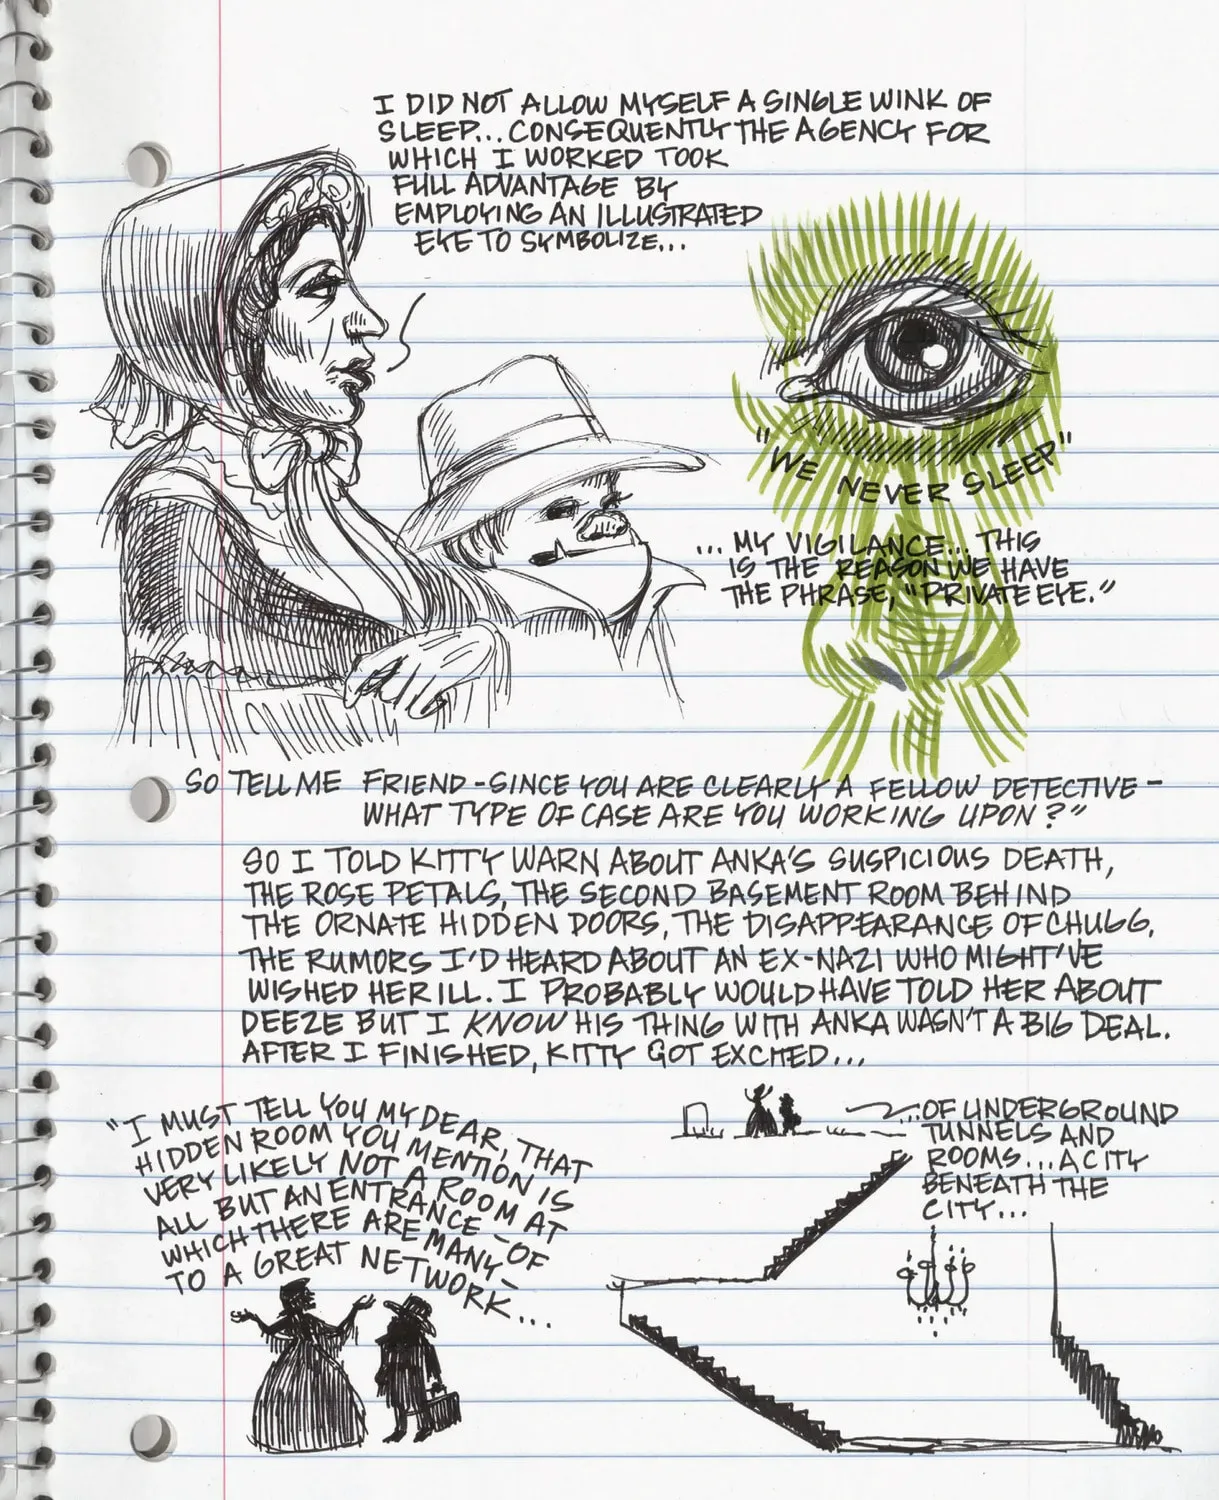 I DID NOT ALLOW MYSELF A SINGLE WINK OF
SLEEP... CONSEQUENTLY THE AGENCY FOR
WHICH I WORKED TOOK
FULL ADVANTAGE BY
EMPLOYING AN ILLUSTRATED
EYE TO SYMBOLIZE...
"WE NEVER SLEEP"
... MY VIGILANCE... THIS
IS THE REASON WE HAVE
THE PHRASE, "PRIVATE EYE."
SO TELL ME FRIEND - SINCE YOU ARE CLEARLY A FELLOW DETECTIVE -
WHAT TYPE OF CASE ARE YOU WORKING UPON?"
SO I TOLD KITTY WARN ABOUT ANKA'S SUSPICIOUS DEATH,
THE ROSE PETALS, THE SECOND BASEMENT ROOM BEHIND
THE ORNATE HIDDEN DOORS, THE DISAPPEARANCE OF CHUGG,
THE RUMORS I'D HEARD ABOUT AN EX-NAZI WHO MIGHT'VE
WISHED HER ILL. I PROBABLY WOULD HAVE TOLD HER ABOUT
DEEZE BUT I KNOW HIS THING WITH ANKA WASN'T A BIG DEAL.
AFTER I FINISHED, KITTY GOT EXCITED...
"I MUST TELL YOU MY DEAR, THAT
HIDDEN ROOM YOU MENTION IS
VERY LIKELY NOT A ROOM AT
ALL BUT AN ENTRANCE - OF
WHICH THERE ARE MANY -
TO A GREAT NETWORK...
...OF UNDERGROUND
TUNNELS AND
ROOMS... A CITY
BENEATH THE
CITY...